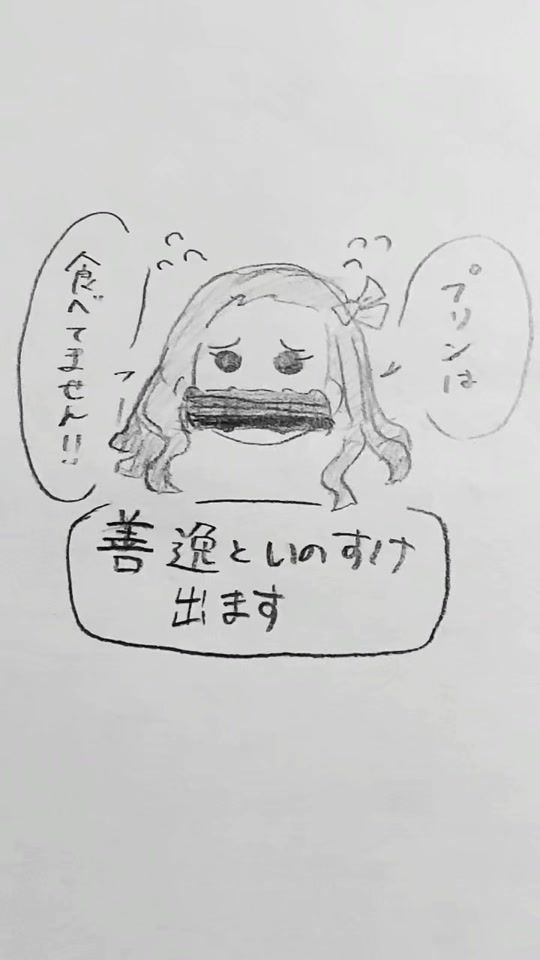 プリンは
食べてません!!
善逸といのすけ
出ます